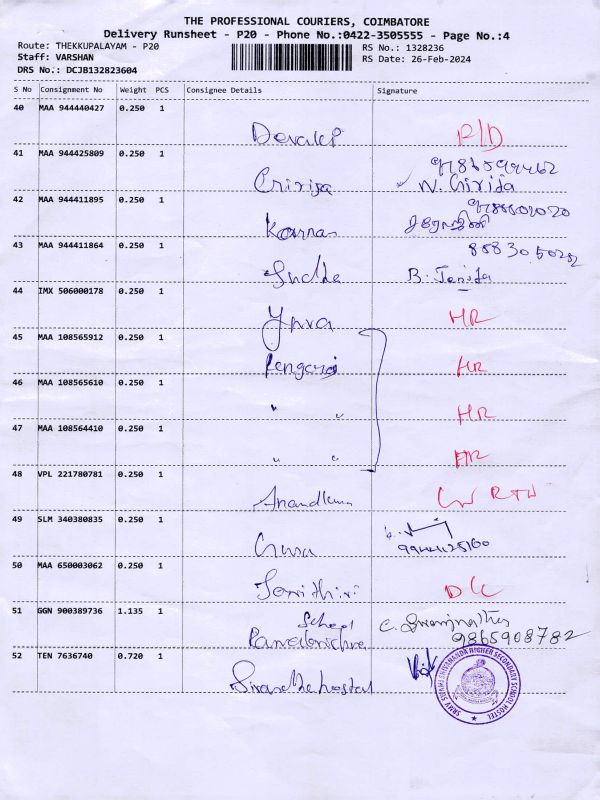 THE PROFESSIONAL COURIERS, COIMBATORE
Delivery Runsheet - P20 - Phone No.:0422-3505555 - Page No.:4
Route: THEKKUPALAYAM - P20
RS No.: 1328236
Staff: VARSHAN
RS Date: 26-Feb-2024
DRS No.: DCJB132823604
S No Consignment No Weight PCS Consignee Details Signature
40 MAA 944440427 0.250 1
Devaki
41 MAA 944425809 0.250 1
Cririja N. Girija
42 MAA 944411895 0.250 1
Kannan சரோஜினி
43 MAA 944411864 0.250 1
Sudha B. Jenifa
44 IMX 506000178 0.250 1
HR
45 MAA 108565912 0.250 1
HR
46 MAA 108565610 0.250 1
" " HR
47 MAA 108564410 0.250 1
" " HR
48 VPL 221780781 0.250 1
RTN
49 SLM 340380835 0.250 1
9944425100
50 MAA 650003062 0.250 1
DLC
51 GGN 900389736 1.135 1
School
9865908782
52 TEN 7636740 0.720 1
SRMV SWAMI SHIVANANDA HIGHER SECONDARY SCHOOL HOSTEL